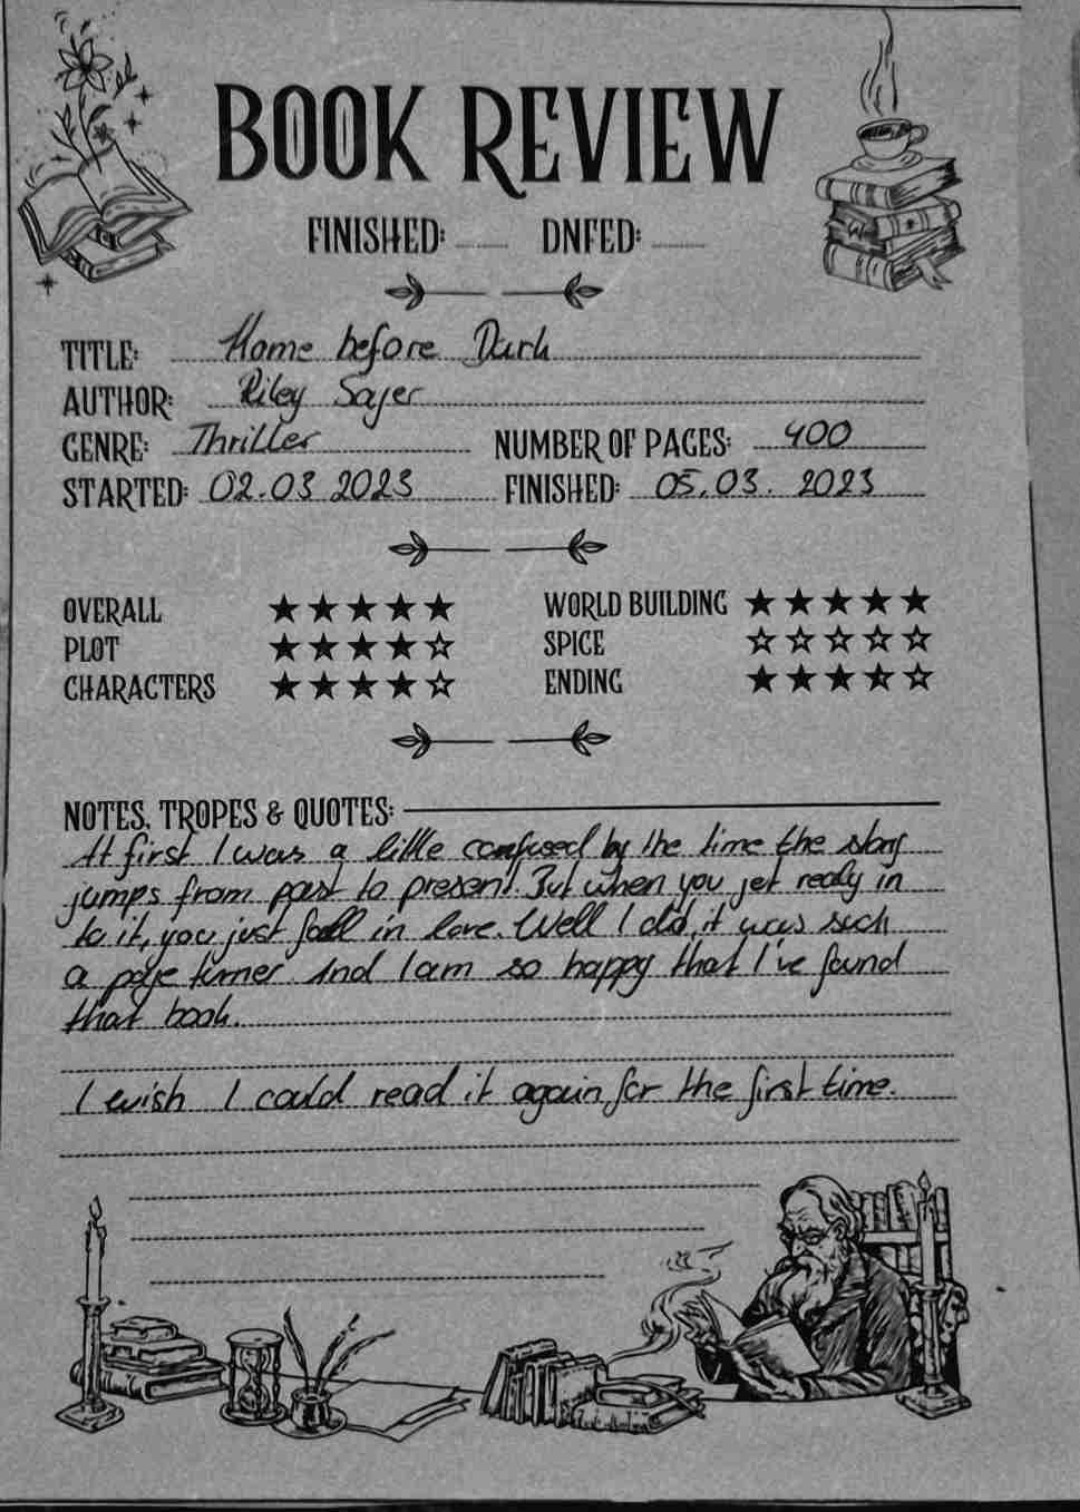 BOOK REVIEW
FINISHED: DNFED:
TITLE: Home before Dark
AUTHOR: Riley Sajer
GENRE: Thriller NUMBER OF PAGES: 400
STARTED: 02.03 2023 FINISHED: 05.03. 2023
OVERALL ★★★★★ WORLD BUILDING ★★★★★
PLOT ★★★★☆ SPICE ☆☆☆☆☆
CHARACTERS ★★★★☆ ENDING ★★★☆☆
NOTES, TROPES & QUOTES:
At first I was a little confused by the time the story
jumps from past to present. But when you get realy in
to it, you just fall in love. Well I did, it was such
a page turner. And I am so happy that I've found
that book.
I wish I could read it again for the first time.